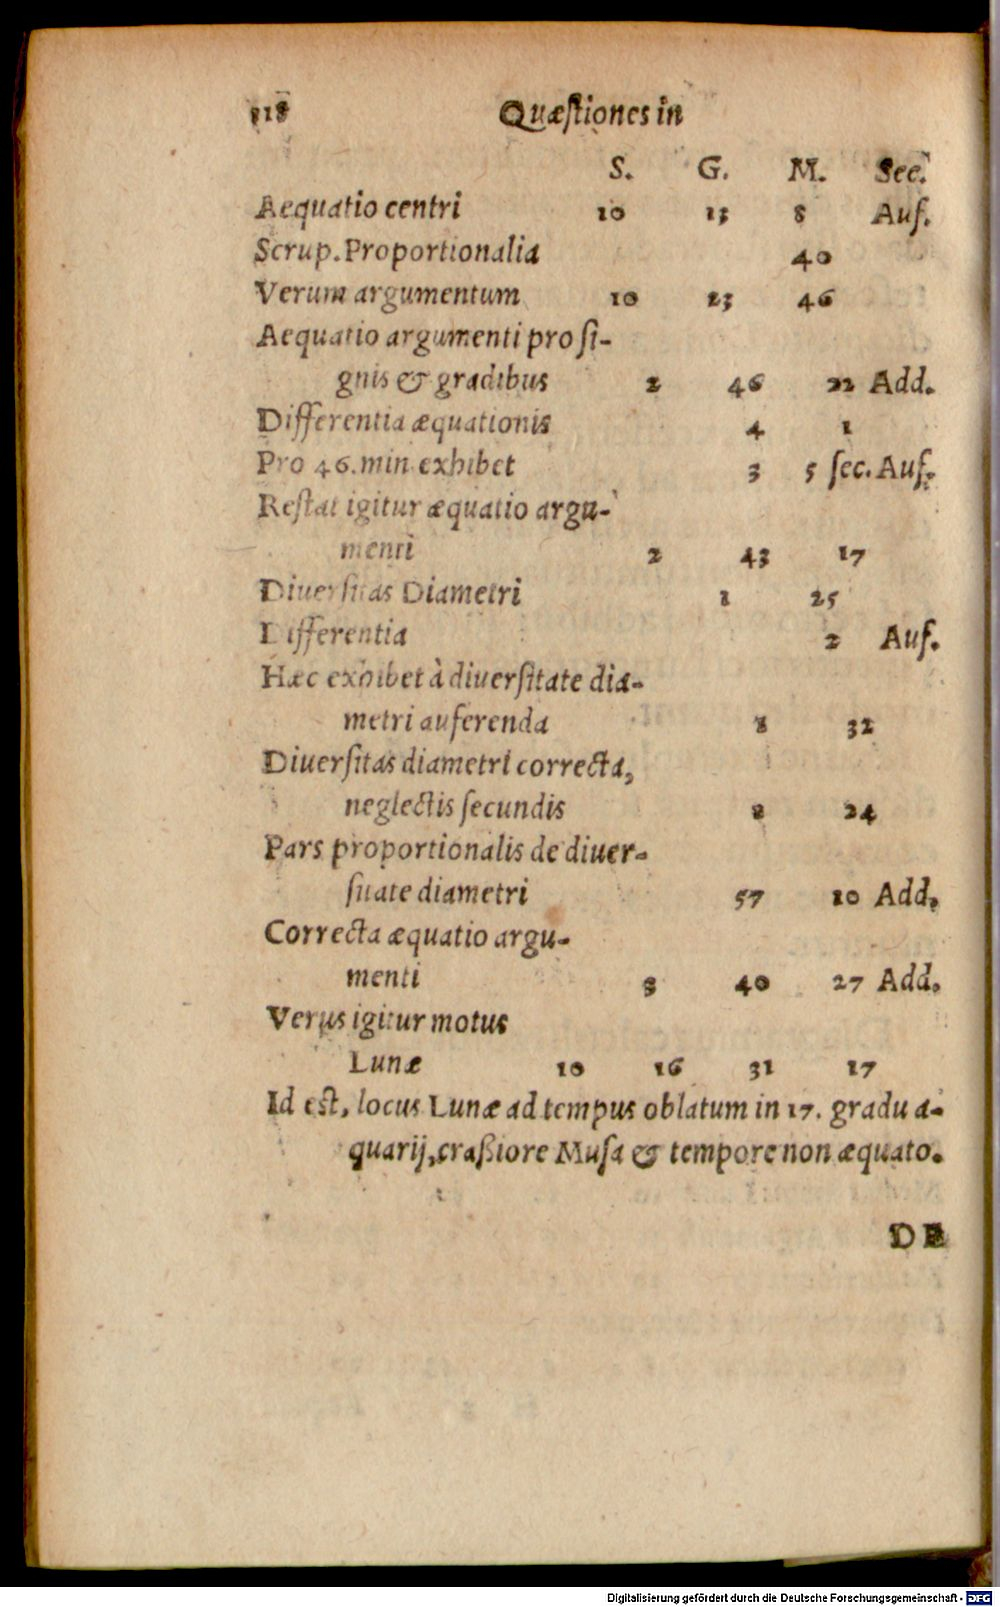 118 Quæſtiones in
S. G. M. Sec.
Aequatio centri 10 13 8 Auf.
Scrup. Proportionalia 40
Verum argumentum 10 23 46
Aequatio argumenti pro ſi-
gnis & gradibus 2 46 22 Add.
Differentia æquationis 4 1
Pro 46. min exhibet 3 5 ſec. Auf.
Reſtat igitur æquatio argu-
menti 2 43 17
Diuerſitas Diametri 1 25
Differentia 2 Auf.
Hæc exhibet à diuerſitate dia-
metri auferenda 1 32
Diuerſitas diametri correcta,
neglectis ſecundis 1 24
Pars proportionalis de diuer-
ſitate diametri 57 10 Add.
Correcta æquatio argu-
menti 3 40 27 Add.
Verus igitur motus
Lunæ 10 16 31 17
Id eſt, locus Lunæ ad tempus oblatum in 17. gradu a-
quarij, craßiore Muſa & tempore non æquato.
DE
Digitalisierung gefördert durch die Deutsche Forschungsgemeinschaft - DFG